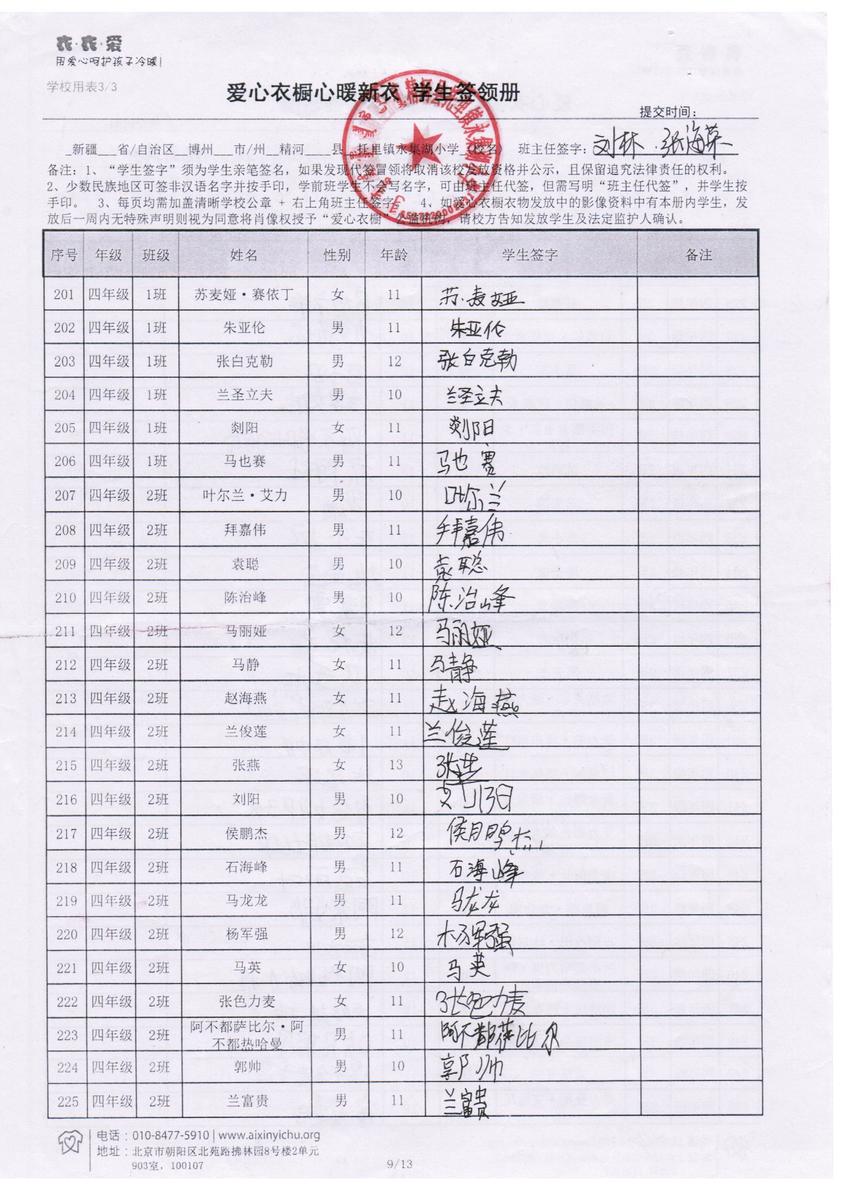 衣·衣·爱
用爱心呵护孩子冷暖!
学校用表3/3
爱心衣橱心暖新衣 学生签领册
提交时间:
_新疆___省/自治区__博州__市/州_精河____县_托里镇永集湖小学_(校名) 班主任签字: 刘林.张海荣
备注:1、“学生签字”须为学生亲笔签名,如果发现代签冒领将取消该校发放资格并公示,且保留追究法律责任的权利。
2、少数民族地区可签非汉语名字并按手印,学前班学生不会写名字,可由班主任代签,但需写明“班主任代签”,并学生按
手印。 3、每页均需加盖清晰学校公章 + 右上角班主任签字。 4、如爱心衣橱衣物发放中的影像资料中有本册内学生,发
放后一周内无特殊声明则视为同意将肖像权授予“爱心衣橱”,请校方告知发放学生及法定监护人确认。
序号 年级 班级 姓名 性别 年龄 学生签字 备注
201 四年级 1班 苏麦娅·赛依丁 女 11 苏·麦娅
202 四年级 1班 朱亚伦 男 11 朱亚伦
203 四年级 1班 张白克勒 男 12 张白克勒
204 四年级 1班 兰圣立夫 男 10 兰圣立夫
205 四年级 1班 剡阳 女 11 剡阳
206 四年级 1班 马也赛 男 11 马也赛
207 四年级 2班 叶尔兰·艾力 男 10 叶尔兰
208 四年级 2班 拜嘉伟 男 11 拜嘉伟
209 四年级 2班 袁聪 男 10 袁聪
210 四年级 2班 陈治峰 男 10 陈治峰
211 四年级 2班 马丽娅 女 12 马丽娅
212 四年级 2班 马静 女 11 马静
213 四年级 2班 赵海燕 女 11 赵海燕
214 四年级 2班 兰俊莲 女 11 兰俊莲
215 四年级 2班 张燕 女 13 张燕
216 四年级 2班 刘阳 男 10 刘阳
217 四年级 2班 侯鹏杰 男 12 侯鹏杰
218 四年级 2班 石海峰 男 11 石海峰
219 四年级 2班 马龙龙 男 11 马龙龙
220 四年级 2班 杨军强 男 12 杨军强
221 四年级 2班 马英 女 10 马英
222 四年级 2班 张色力麦 女 11 张色力麦
223 四年级 2班 阿不都萨比尔·阿不都热哈曼 男 11 阿不都萨比尔
224 四年级 2班 郭帅 男 10 郭帅
225 四年级 2班 兰富贵 男 11 兰富贵
电话:010-8477-5910 | www.aixinyichu.org
地址:北京市朝阳区北苑路拂林园8号楼2单元
903室,100107
9/13